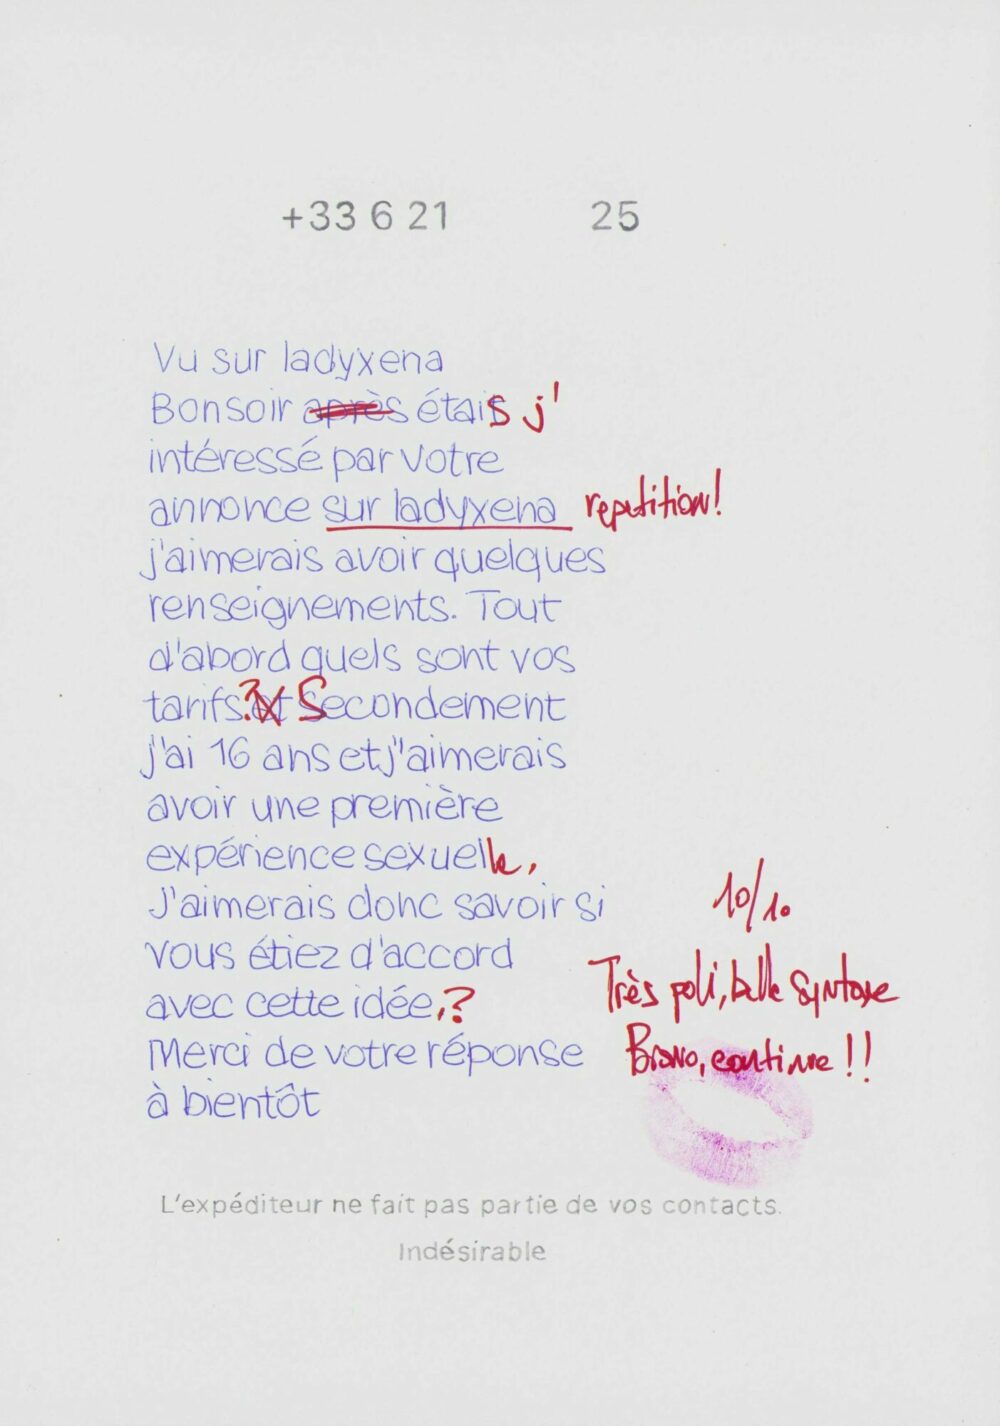 +33 6 21 25
Vu sur ladyxena
Bonsoir après étais j'
intéressé par votre
annonce sur ladyxena repetition!
j'aimerais avoir quelques
renseignements. Tout
d'abord quels sont vos
tarifs? et Secondement
j'ai 16 ans et j'aimerais
avoir une première
expérience sexuelle,
J'aimerais donc savoir si
vous étiez d'accord
avec cette idée,?
Merci de votre réponse
à bientôt
10/10
Très poli, belle syntaxe
Bravo, continue !!
L'expéditeur ne fait pas partie de vos contacts.
Indésirable